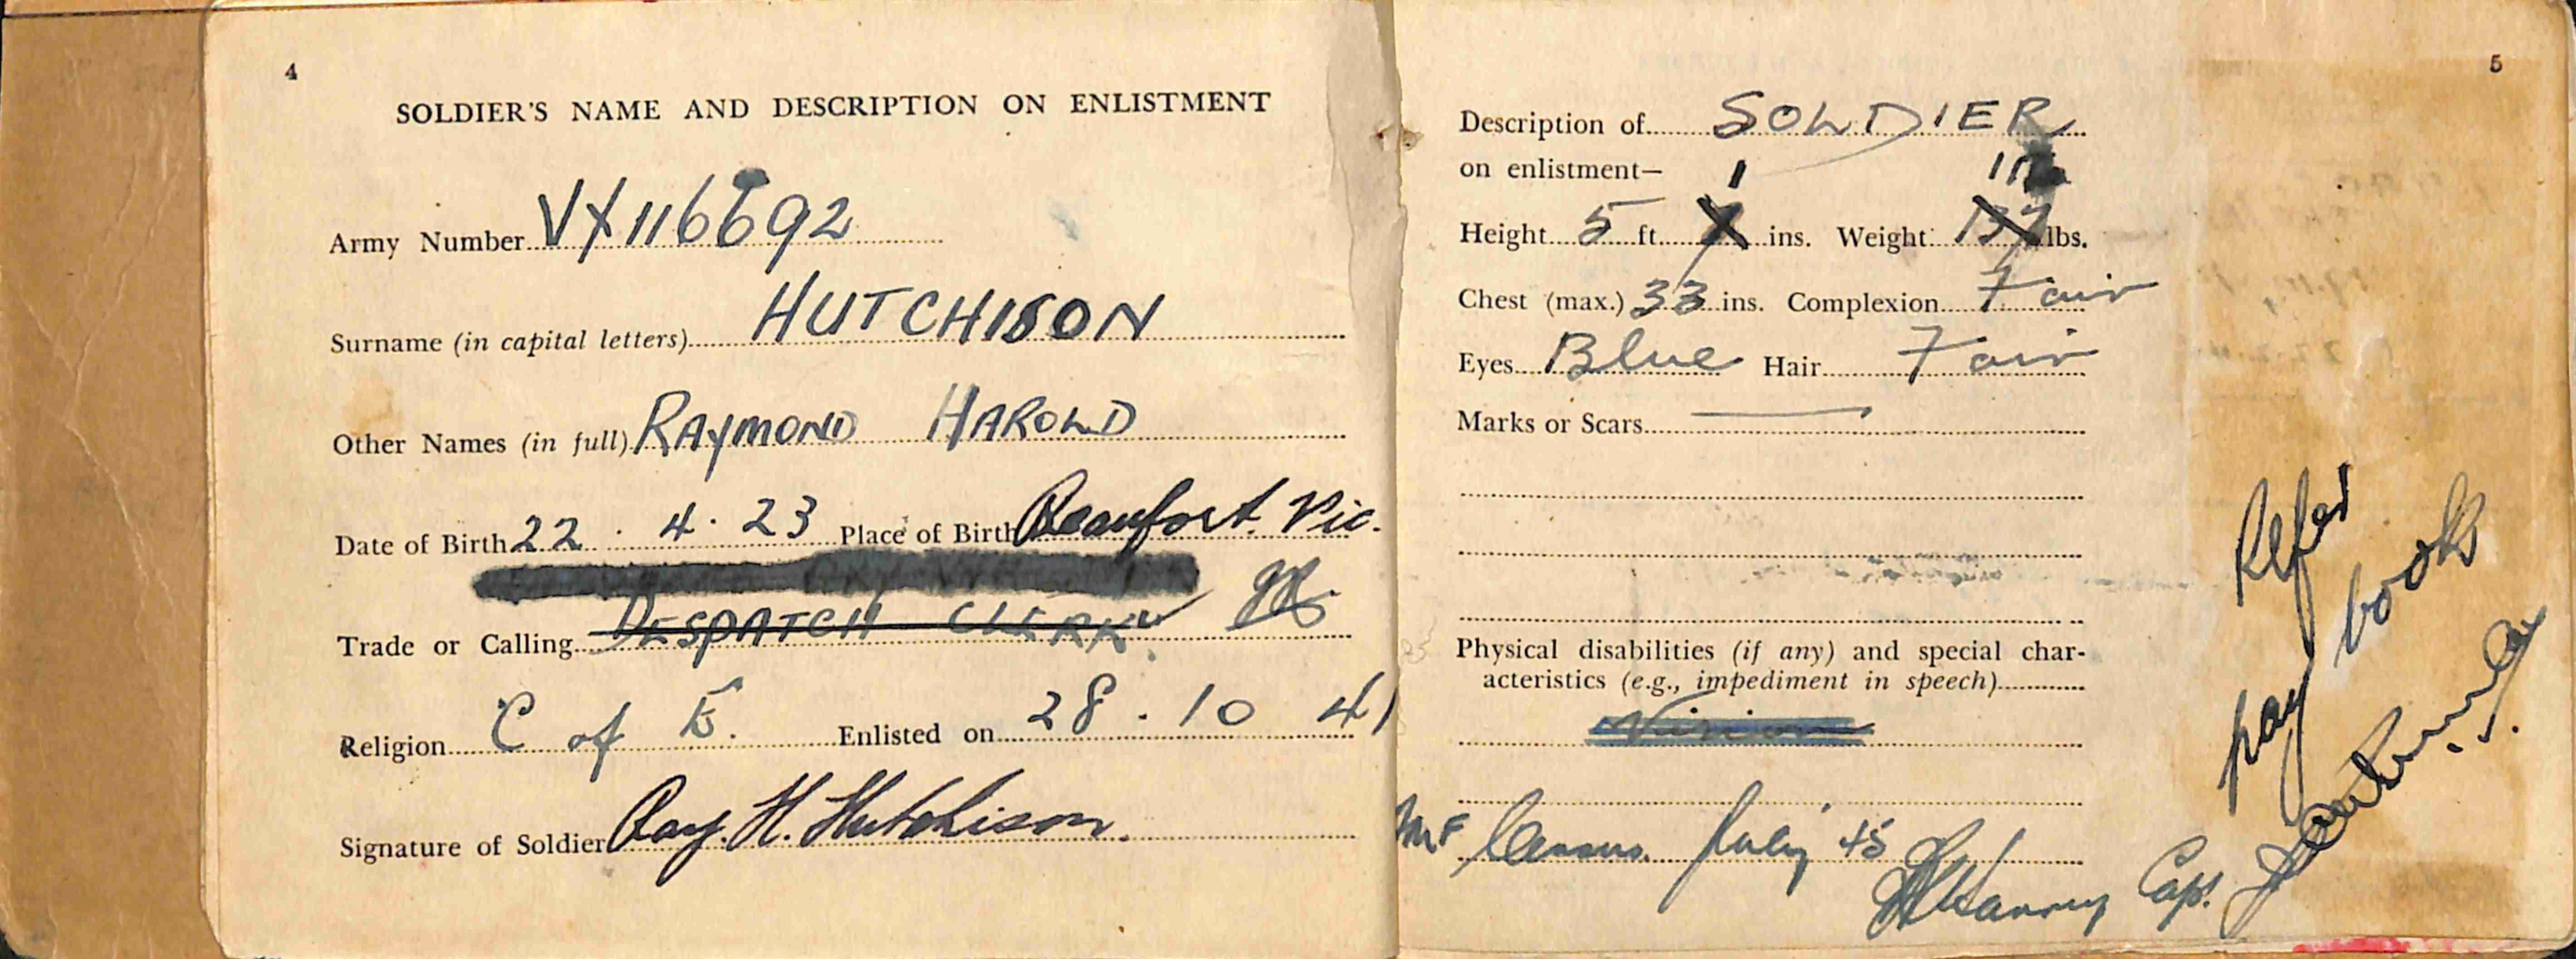 4
SOLDIER'S NAME AND DESCRIPTION ON ENLISTMENT
Army Number VX116692
Surname (in capital letters) HUTCHISON
Other Names (in full) RAYMOND HAROLD
Date of Birth 22 . 4 . 23 Place of Birth Beaufort. Vic.
Trade or Calling DESPATCH CLERK
Religion C of E. Enlisted on 28 . 10 41
Signature of Soldier Ray. H. Hutchison.
5
Description of SOLDIER
on enlistment—
1
Height 5 ft ins. Weight lbs.
Chest (max.) 33 ins. Complexion Fair
Eyes Blue Hair Fair
Marks or Scars
Physical disabilities (if any) and special char-
acteristics (e.g., impediment in speech)
Vision
Census July 45
Cap.
Refer
pay book